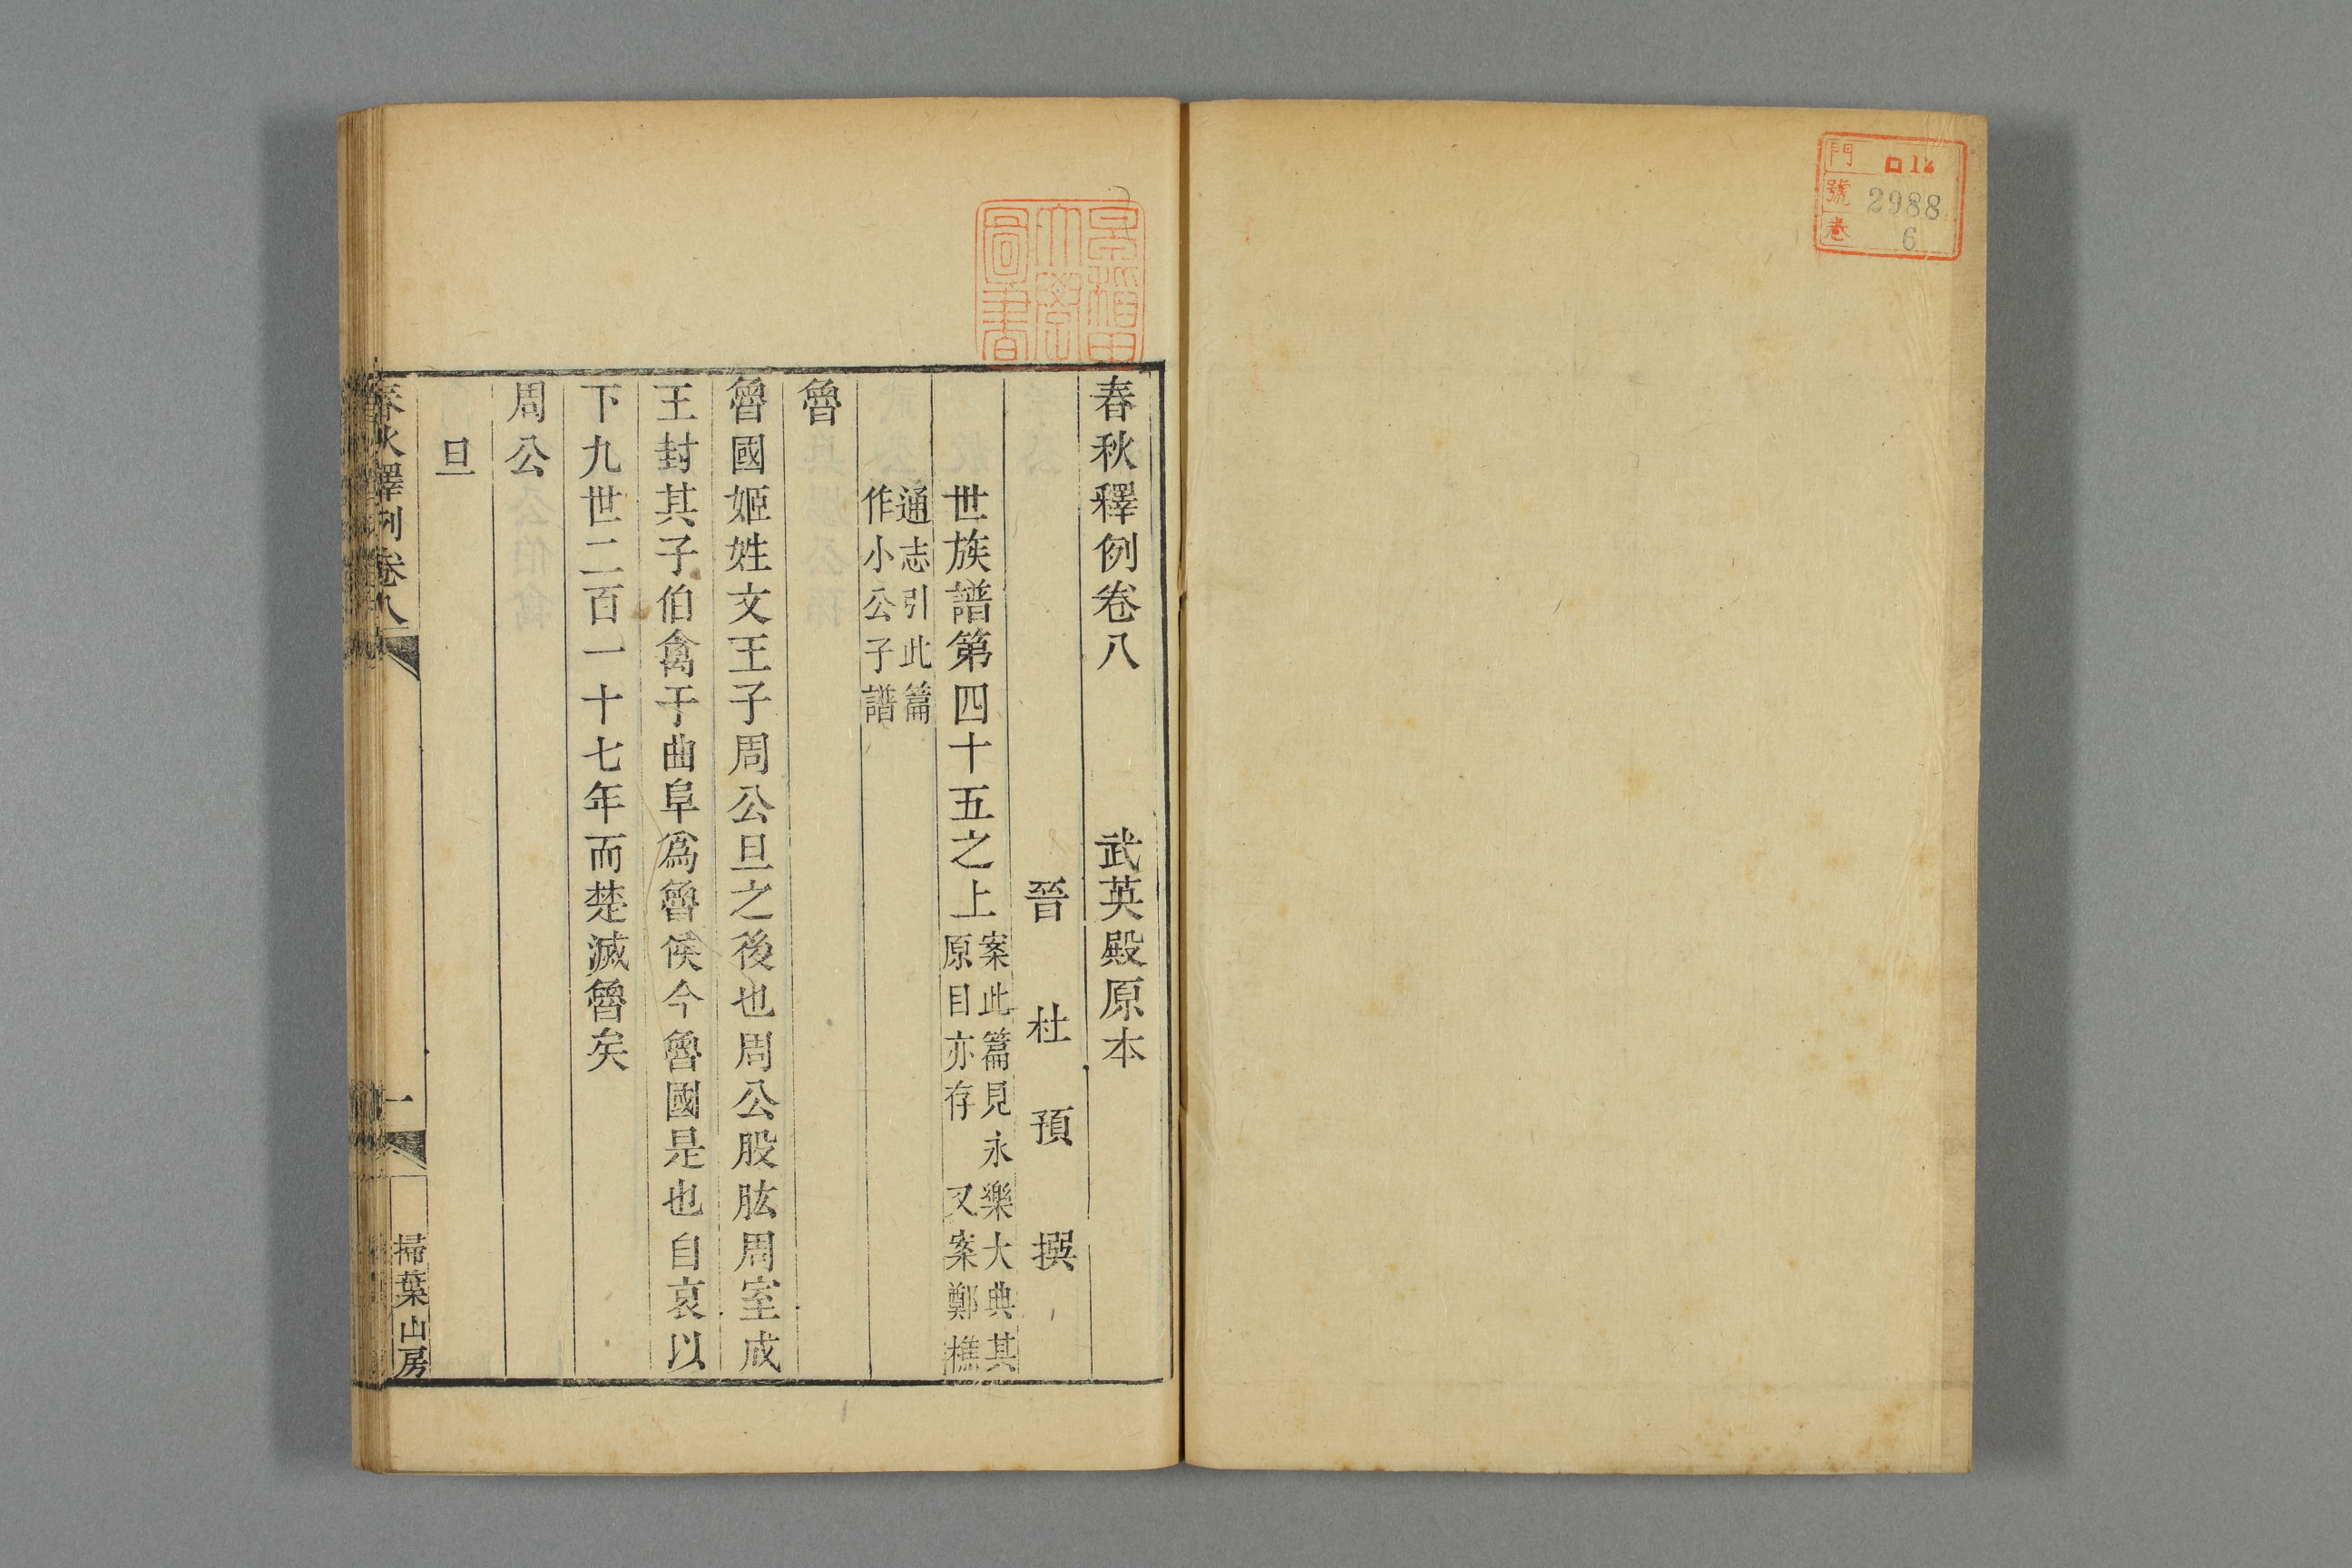 門 ロ12
號 2988
卷 6
早稻田大學圖書
春秋釋例卷八 武英殿原本
晉 杜 預 撰
世族譜第四十五之上 案此篇見永樂大典其原目亦存 又案鄭樵
通志引此篇作小公子譜
魯
魯國姬姓文王子周公旦之後也周公股肱周室成
王封其子伯禽于曲阜爲魯侯今魯國是也自哀以
下九世二百一十七年而楚滅魯矣
周公
旦
春秋釋例卷八 一 掃葉山房